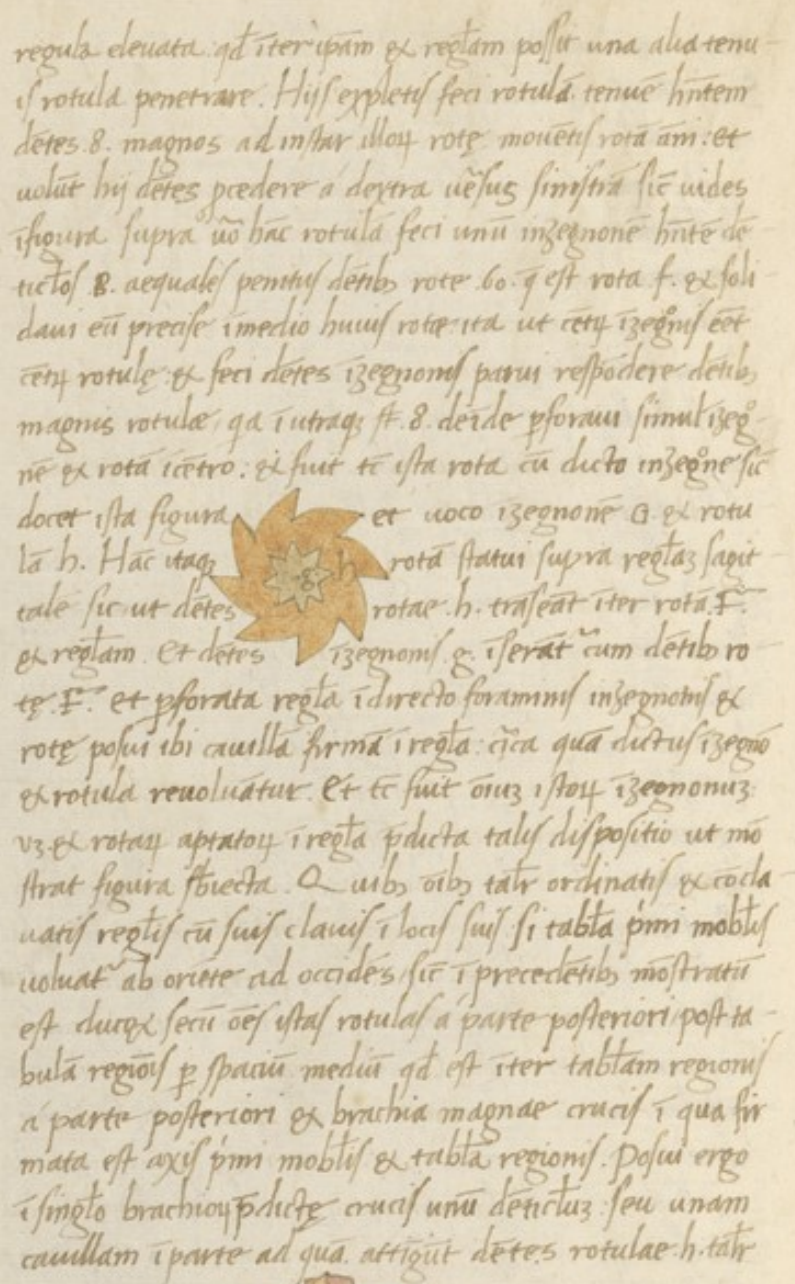 regula elevata qd̄ īter ip̄am & reglam possit una alia tenu-
is rotula penetrare. Hijs expletis feci rotulā tenuē hn̄tem
dētes .8. magnos ad instar illoꝝ rotę movētis rotā āni: et
uolūt hij dētes p̄cedere a dextra uēsus sinistrā sic̄ uides
īfigura supra uō hāc rotulā feci unū inzegnonē hn̄tē dē-
ticłos 8. aequales penitus dētibꝫ rote .60. q̄ est rota f. & soli-
daui eū precise īmedio huius rotæ ita ut cētꝝ īzegōis eēt
cētꝝ rotulę: & feci dētes īzegnonis parui respōdere dētibꝫ
magnis rotulæ, qa ī utraqꝫ st̄ .8. deīde ꝑforaui simul īzegō-
nē & rotā īcētro: & fuit tc̄ ista rota cū dicto inzegōne sic̄
docet ista figura et uoco īzegnonē G. & rotu
lā h. Hāc itaqꝫ g h rotā statui supra reglaꝫ sagit-
tale sic ut dētes rotae .h. trāseāt īter rotā .F.
& reglam. Et dētes īzegnonis g. īserāt᷑ cum dētibꝫ ro-
tę .F. et ꝑforata regla īdirecto foraminis inzegnonis &
rotę posui ibi cauillā firmā ī regla: cīca quā dictus īzegnō
& rotula reuoluātur. Et tc̄ fuit oīuꝫ istoꝝ īzegnonuꝫ
uꝫ & rotaꝝ aptatoꝝ ī regla p̄dicta talis dispositio ut mō
strat figura sb̄iecta. Quibꝫ oībꝫ talr̄ ordinatis & cōcla-
uatis reglis cū suis clauis ī locis suis si tabla p̄mi moblis
uoluat᷑ ab oriēte ad occidēs sic̄ ī precedētibꝫ mōstratū
est ducꝫ secū oēs istas rotulas a parte posteriori post ta-
bulā regiōis ꝑ spaciū mediū qd̄ est īter tablam regionis
a parte posteriori & brachia magnae crucis ī qua fir
mata est axis p̄mi moblis & tabla regionis. Posui ergo
ī singlo brachioꝝ p̄dictę crucis unū dēticluꝫ seu unam
cauillam ī parte ad quā attigūt dētes rotulae .h. talr̄